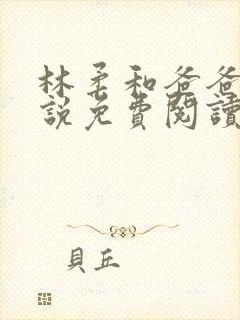 林柔和爸爸
說免費閱讀
貝丘